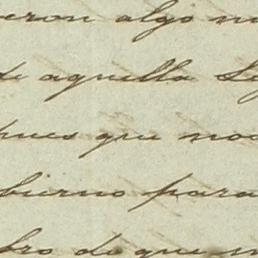 eron algo no
de aquella Se
pues que noo
bierno para
bro de que n